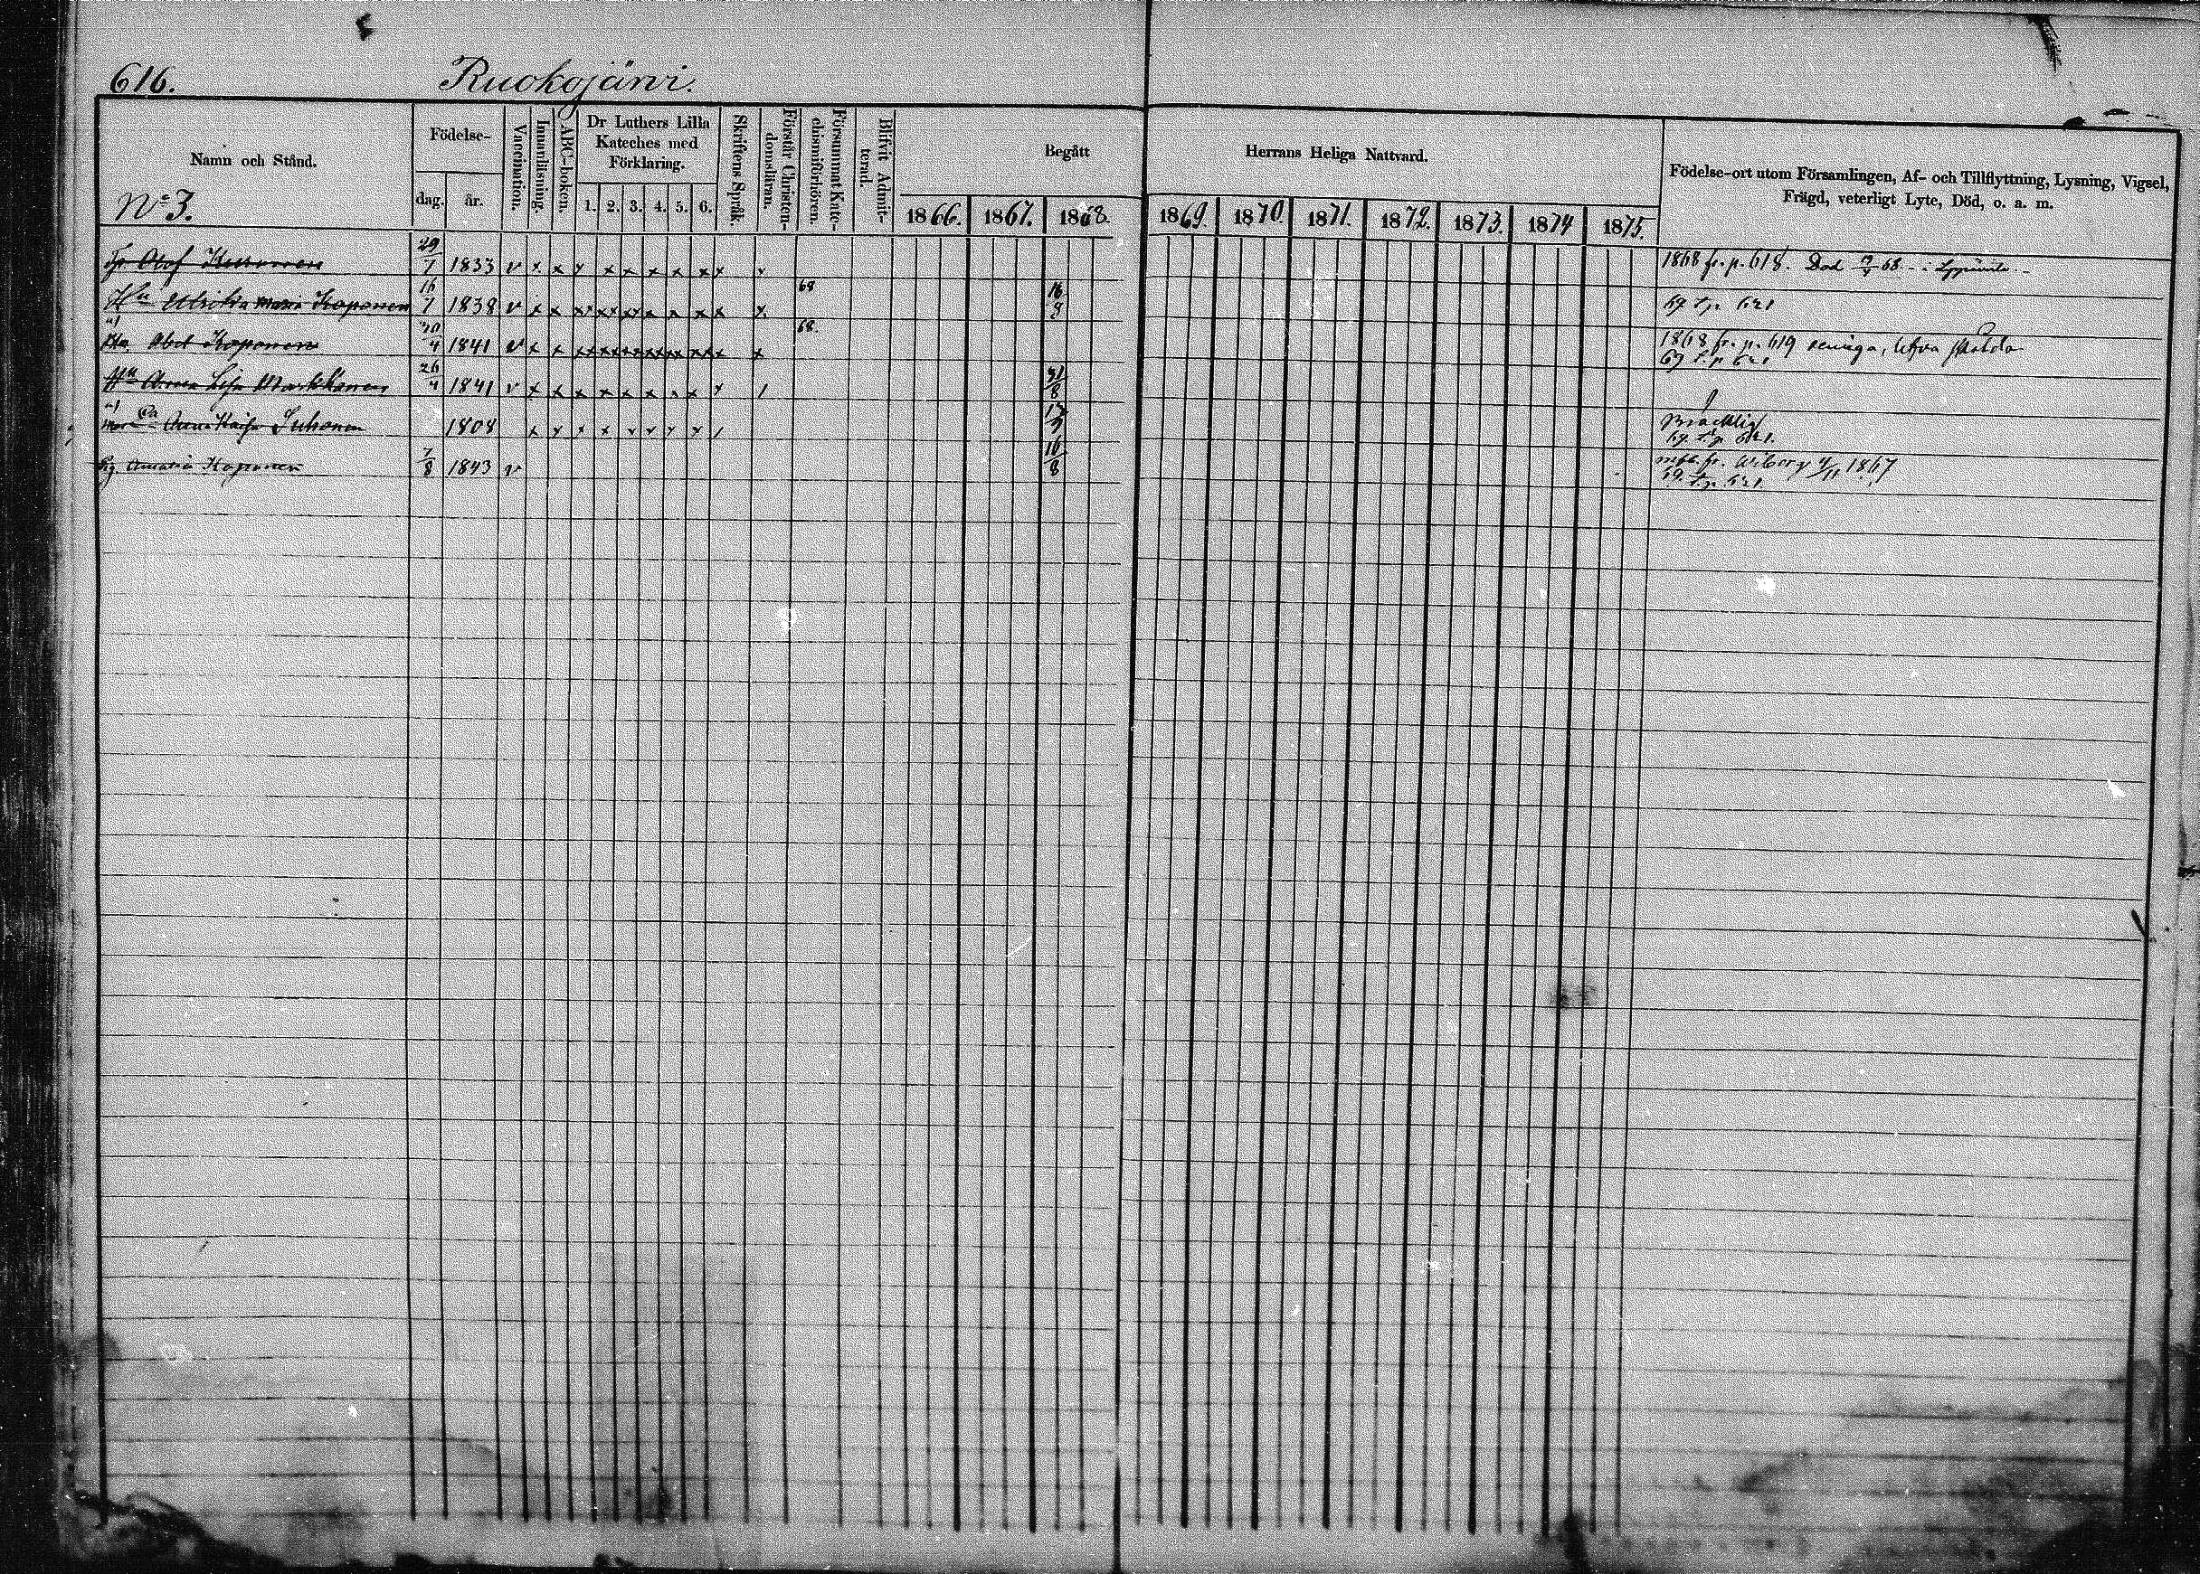 616. Ruokojärvi.
Namn och Stånd. Födelse- dag. år. Vaccination. Innanläsning. ABC-boken. Dr Luthers Lilla Kateches med Förklaring. 1. 2. 3. 4. 5. 6. Skriftens Språk. Förstår Christendomsläran. Försummat Katechismiförhören. Blifvit Admitterad. Begått Herrans Heliga Nattvard. Födelse-ort utom Församlingen, Af- och Tillflyttning, Lysning, Vigsel, Frägd, veterligt Lyte, Död, o. a. m.
1866. 1867. 1868. 1869. 1870. 1871. 1872. 1873. 1874 1875.
No 3.
Olof 29/7 1833 v x x x x x x x x x x 1868 fr. p. 618. Död 68
Hu Maria Koponen 16/7 1838 v 68 16/9 69 t. p. 621
Abel Koponen 30/4 1841 v 68. 1868 fr. p. 619
69 t. p. 621
Hu Anna Lisa Markkanen 26/4 1841 v 31/8
Anna Kaisa Juhonen 1808 Bräcklig
69 t. p. 621.
Amalia Koponen 7/8 1843 v 16/8 fr. Wiborg 1867
69. t. p. 621.